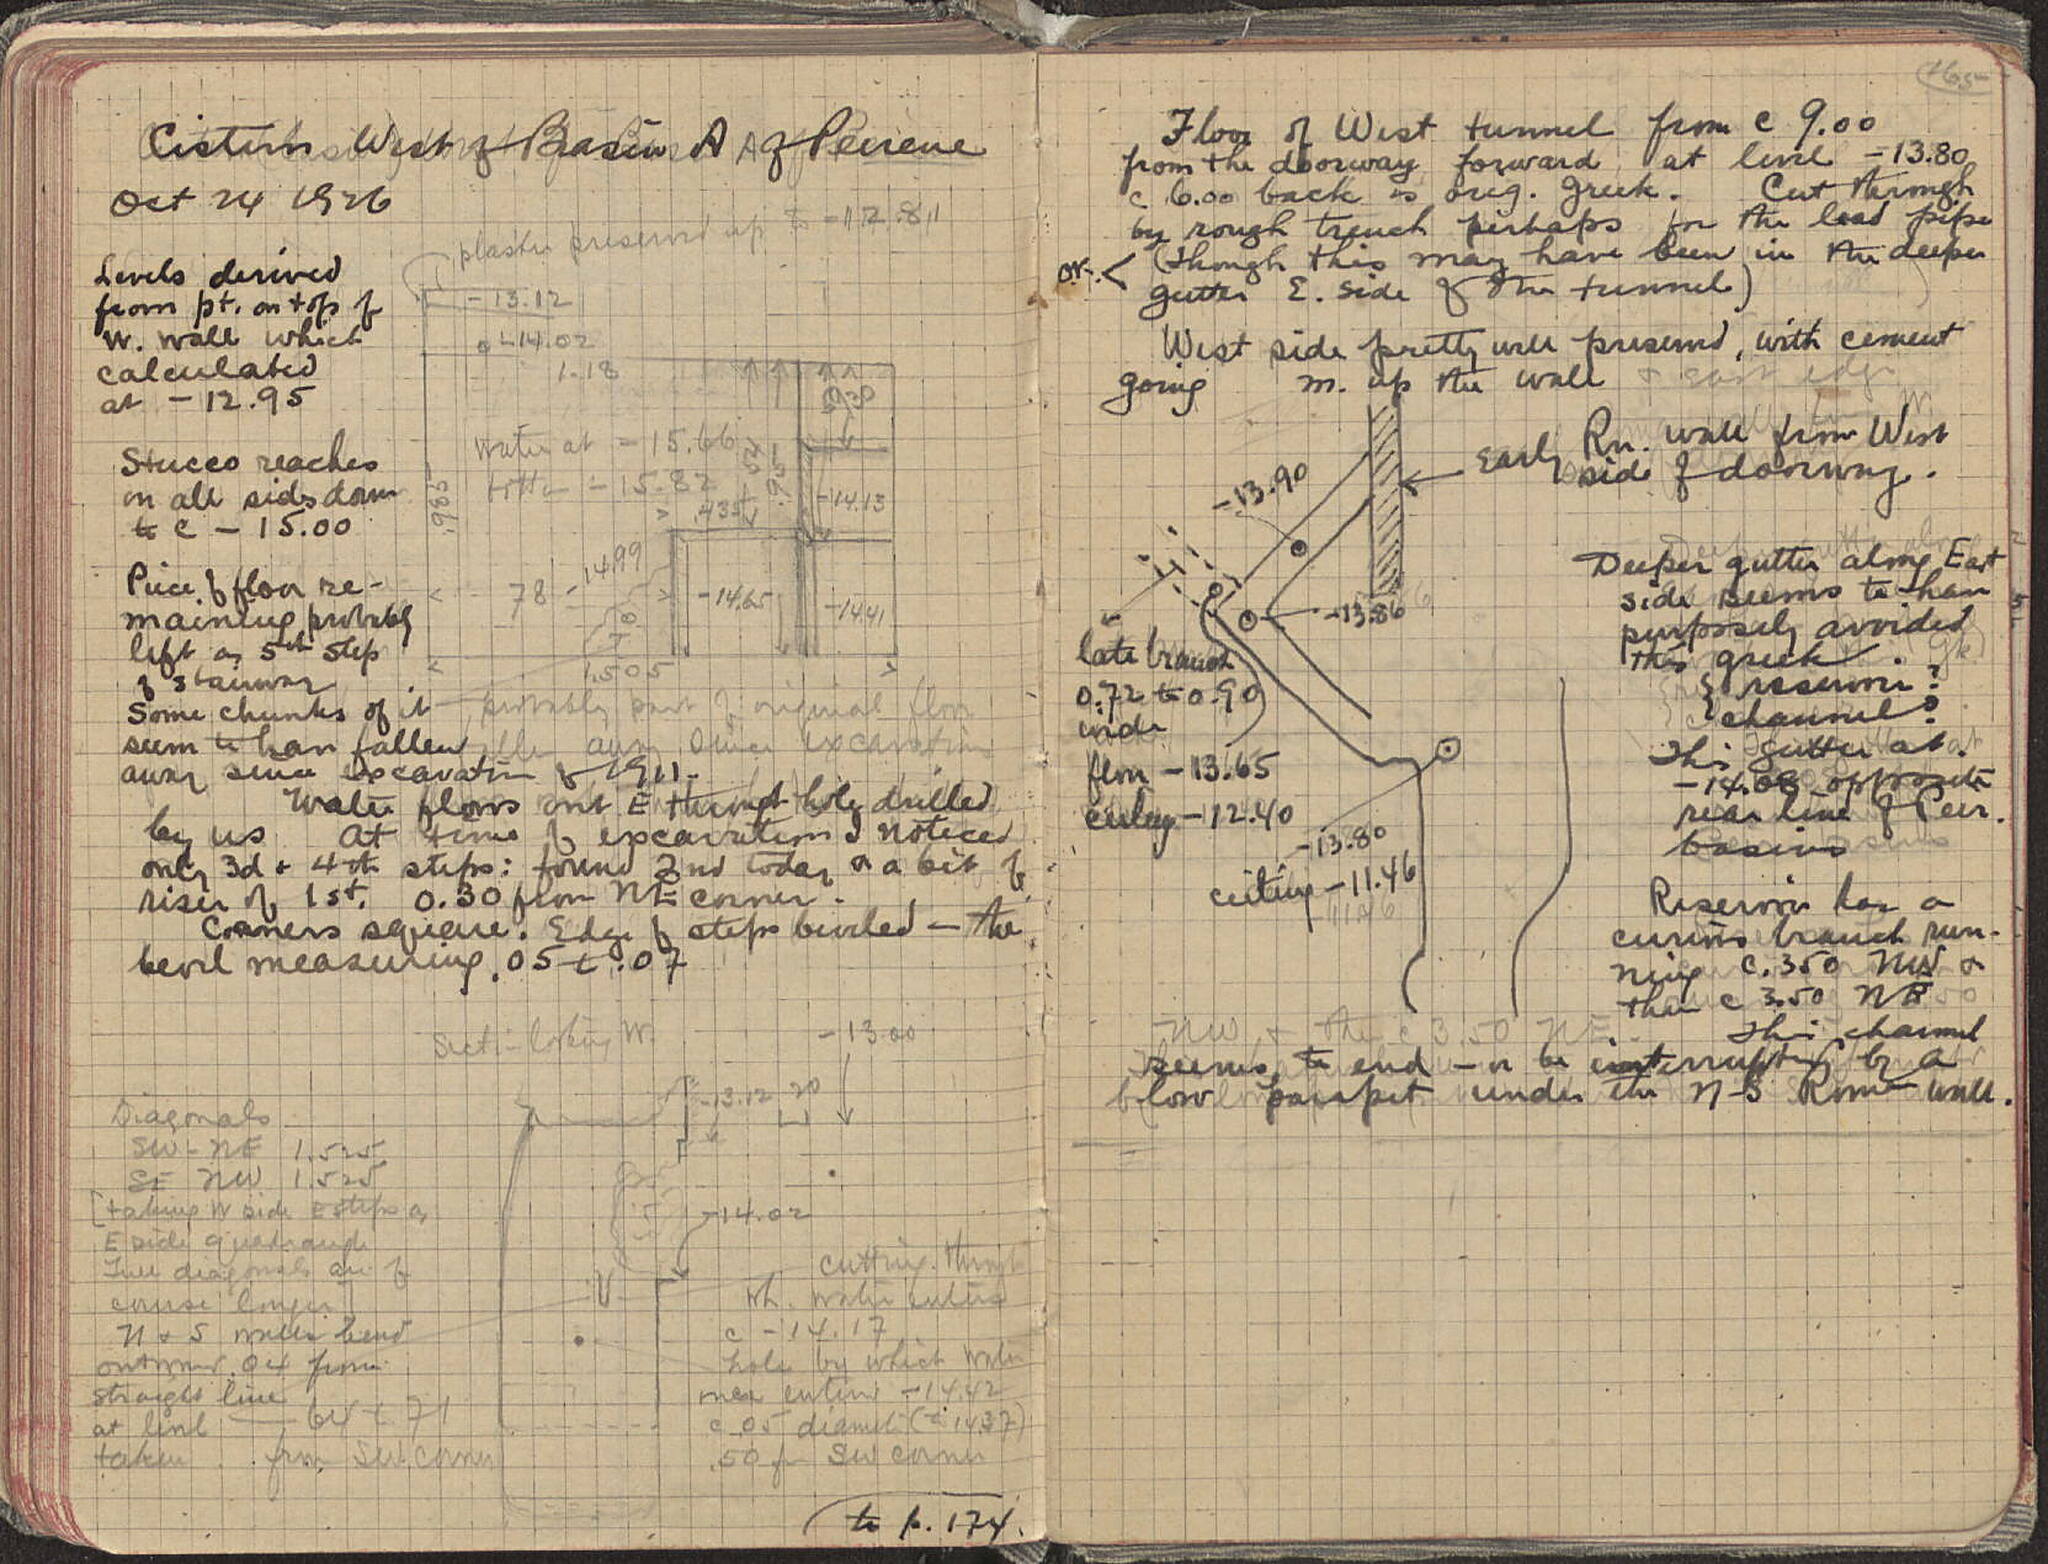 Cistern West of Basin A of Peirene
Oct 24 1926
plaster preserved up to -12.811
Levels derived
from pt. on top of
W. wall which
calculated
at -12.95
-13.12
-14.02
1.18
Stucco reaches
on all sides down
to c -15.00
water at -15.66
-15.82
.985
.435
-14.13
Piece of floor re-
maining probably
left as 5th step
of stairway
78
-14.99
-14.65
-14.41
1.505
Some chunks of it
seem to have fallen
away since excavation of 1911.
probably part of original floor
away since excavation
Water flows out E through hole drilled
by us At time of excavation I noticed
only 3d + 4th steps: found 2nd today & a bit of
riser of 1st. 0.30 from NE corner.
Corners square. Edge of steps beveled - the
bevil measuring .05 to .07
Section looking W.
-13.00
-13.12
20
Diagonals
SW-NE 1.525
SE NW 1.525
[taking W side E steps as
E side quadrangle
True diagonals are of
course longer]
N + S walls bend
outward .04 from
straight line
at level
taken
64 + 71
from SW corner
-14.02
cutting through
wh. water enters
c -14.17
hole by which water
enters -14.42
c .05 diamet. (-14.37)
.50 fr SW corner
to p. 174.
165
Floor of West tunnel from c 9.00
from the doorway forward at level -13.80
c 6.00 back is orig. Greek. Cut through
by rough trench perhaps for the lead pipe
or. < (though this may have been in the deeper
gutter E. side of the tunnel)
West side pretty well preserved, with cement
going m. up the wall
+ east edge
Early Rn. wall from West
side of doorway.
-13.90
-13.86
late branch
0.72 to 0.90
wide
floor -13.65
ceiling -12.40
-13.80
ceiling -11.46
Deeper gutter along East
side seems to have
purposely avoided
this greek
{ reservoir?
{ channel?
This gutter at
-14.08 opposite
rear line of Peir.
basins
Reservoir has a
curious branch run-
ning c. 3.50 NW &
then c 3.50 NE
This channel
NW + the c 3.50 NE
seems to end - or be interrupted by a
low parapet under the N-S Roman wall.